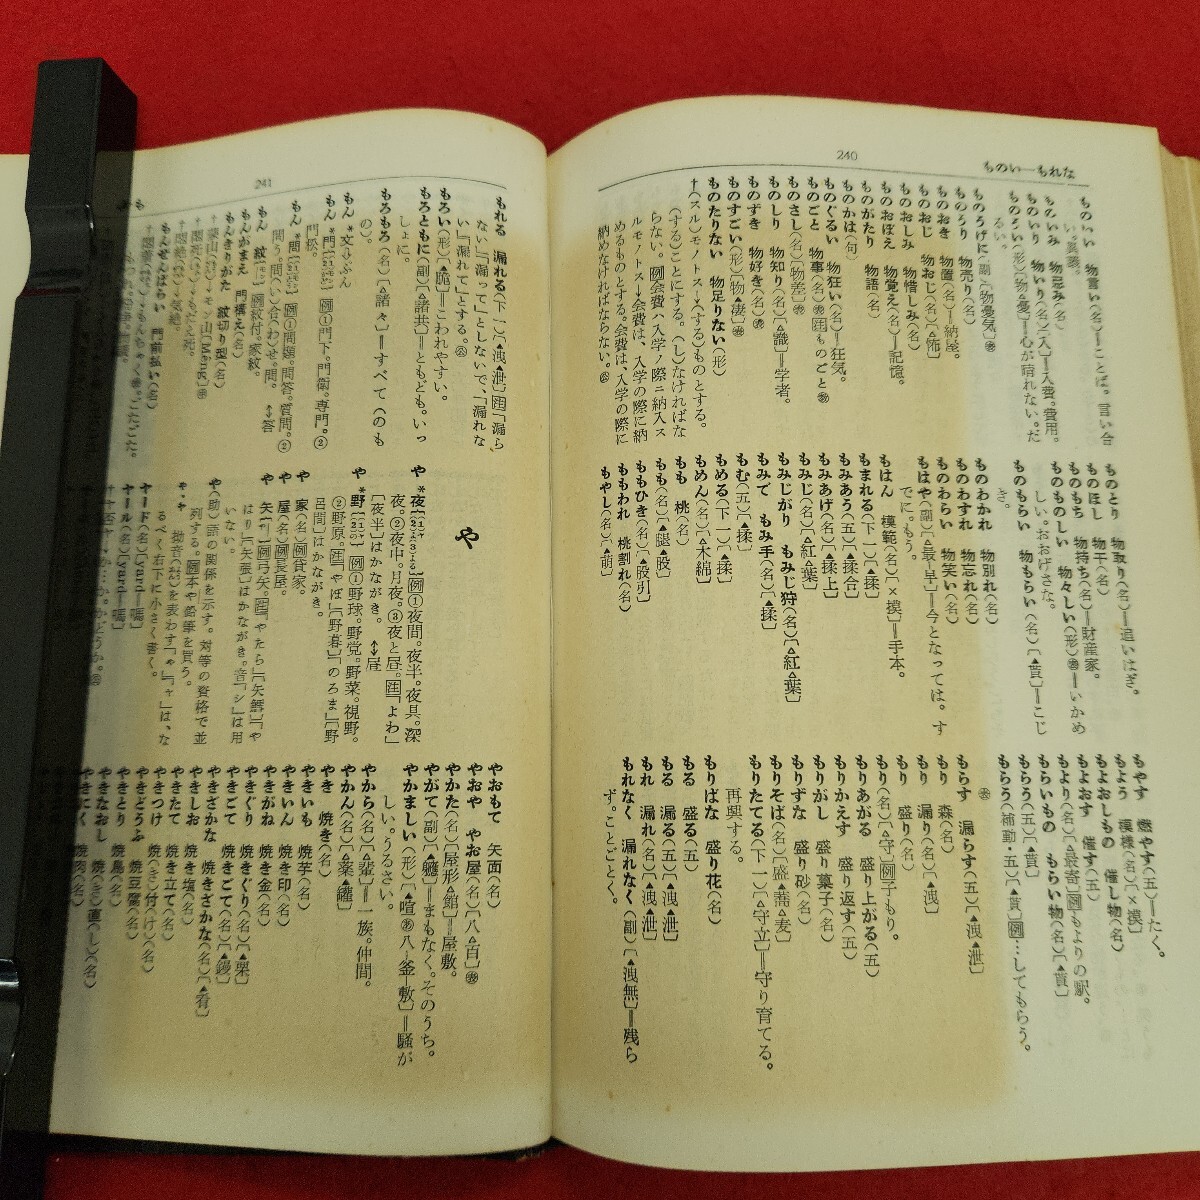 ものい―もれな
240
ものいい 物言い(名)＝ことば。言い合
い。異議。
ものいみ 物忌み(名)
ものいり 物いり(名)〔入〕＝入費。費用。
ものうい(形)〔物▲憂〕＝心が晴れない。だ
るい。
ものうげに(副)〔物憂気〕
ものうり 物売り(名)
ものおき 物置(名)＝納屋。
ものおじ 物おじ(名)〔怖〕
ものおしみ 物惜しみ(名)
ものおぼえ 物覚え(名)＝記憶。
ものがたり 物語(名)
ものかは(句)
ものぐるい 物狂い(名)＝狂気。
ものごと 物事(名)
ものさし(名)〔物差〕
ものしり 物知り(名)〔△識〕＝学者。
ものずき 物好き(名)
ものすごい(形)〔物△凄〕
ものたりない 物足りない(形)
†(スル)モノトス→(する)ものとする。
(する)ことにする。(し)なければな
らない。例会費ハ入学ノ際ニ納入ス
ルモノトス→会費は、入学の際に納
めるものとする。会費は、入学の際に
納めなければならない。
ものとり 物取り(名)＝追いはぎ。
ものほし 物干(名)
ものもち 物持ち(名)＝財産家。
ものものしい 物々しい(形)＝いかめ
しい。おおげさな。
ものもらい 物もらい(名)〔▲貰〕＝こじ
き。
ものわかれ 物別れ(名)
ものわすれ 物忘れ(名)
ものわらい 物笑い(名)
もはや(副)〔△最△早〕＝今となっては。す
でに。もう。
もはん 模範(名)〔×摸〕＝手本。
もまれる(下一)〔▲揉〕
もみあう(五)〔▲揉合〕
もみあげ(名)〔▲揉上〕
もみじ(名)〔紅△葉〕
もみじがり もみじ狩(名)〔紅△葉〕
もみで もみ手(名)〔▲揉〕
もむ(五)〔▲揉〕
もめる(下一)〔▲揉〕
もめん(名)〔△木綿〕
もも 桃(名)
もも(名)〔▲腿▲股〕
ももひき(名)〔▲股引〕
ももわれ 桃割れ(名)
もやし(名)〔▲萌〕
もやす 燃やす(五)＝たく。
もよう 模様(名)〔×摸〕
もよおしもの 催し物(名)
もよおす 催す(五)
もより(名)〔△最寄〕例もよりの駅。
もらいもの もらい物(名)〔▲貰〕
もらう(五)〔▲貰〕
もらう(補動・五)〔▲貰〕例…してもらう。
もらす 漏らす(五)〔▲洩▲泄〕
もり 森(名)
もり 漏り(名)〔▲洩〕
もり 盛り(名)
もり(名)〔△守〕例子もり。
もりあがる 盛り上がる(五)
もりかえす 盛り返す(五)
もりがし 盛り菓子(名)
もりずな 盛り砂(名)
もりそば(名)〔盛▲蕎△麦〕
もりたてる(下一)〔△守立〕＝守り育てる。
再興する。
もりばな 盛り花(名)
もる 盛る(五)
もる 漏る(五)〔▲洩▲泄〕
もれ 漏れ(名)〔▲洩▲泄〕
もれなく 漏れなく(副)〔▲洩無〕＝残ら
ず。ことごとく。
241
もれる 漏れる(下一)〔▲洩▲泄〕注「漏ら
ない」「漏って」としないで、「漏れな
い」「漏れて」とする。
もろい(形)〔▲脆〕＝こわれやすい。
もろともに(副)〔△諸共〕＝ともども。いっ
しょに。
もろもろ(名)〔△諸々〕＝すべて(のも
の)。
もん *文↓ぶん
もん *門 例①門下。門衛。専門。②
門松。
もん *問 例①問題。問答。質問。②
問う。問(い)合(わ)せ。問。↕答
もん 紋 例紋付。家紋。
もんがまえ 門構え(名)
もんきりがた 紋切り型(名)
もんぜんばらい 門前払い(名)
や
や *夜 例①夜間。夜半。夜具。深
夜。②夜中。月夜。③夜と昼。注「よわ」
〔夜半〕はかながき。↕昼
や *野 例①野球。野党。野菜。視野。
②野原。注「やぼ」〔野暮〕「のろま」〔野
呂間〕はかながき。
や 家(名)例貸家。
や 屋(名)例長屋。
や 矢 例弓矢。注「やたら」〔矢鱈〕「や
はり」〔矢張〕はかながき。音「シ」は用
いない。
や(助)語の関係を示す。対等の資格で並
列する。例本や鉛筆を買う。
や・ャ 拗音を表わす「ゃ」「ャ」は、な
るべく右下に小さく書く。
ヤード(名)〔yard―嗎〕
やおもて 矢面(名)
やおや やお屋(名)〔八△百〕
やかた(名)〔屋形△館〕＝屋敷。
やがて(副)〔▲軈〕＝まもなく。そのうち。
やかましい(形)〔▲喧 八釜敷〕＝騒が
しい。うるさい。
やから(名)〔▲輩〕＝一族。仲間。
やかん(名)〔△薬▲罐〕
やき 焼き(名)
やきいも 焼芋(名)
やきいん 焼き印(名)
やきがね 焼き金(名)
やきぐり 焼きぐり(名)〔▲栗〕
やきごて 焼きごて(名)〔▲鏝〕
やきざかな 焼きざかな(名)〔▲肴〕
やきしお 焼き塩(名)
やきたて 焼き立て(名)
やきつけ 焼(き)付(け)(名)
やきどうふ 焼豆腐(名)
やきとり 焼鳥(名)
やきなおし 焼(き)直(し)(名)
やきにく 焼肉(名)